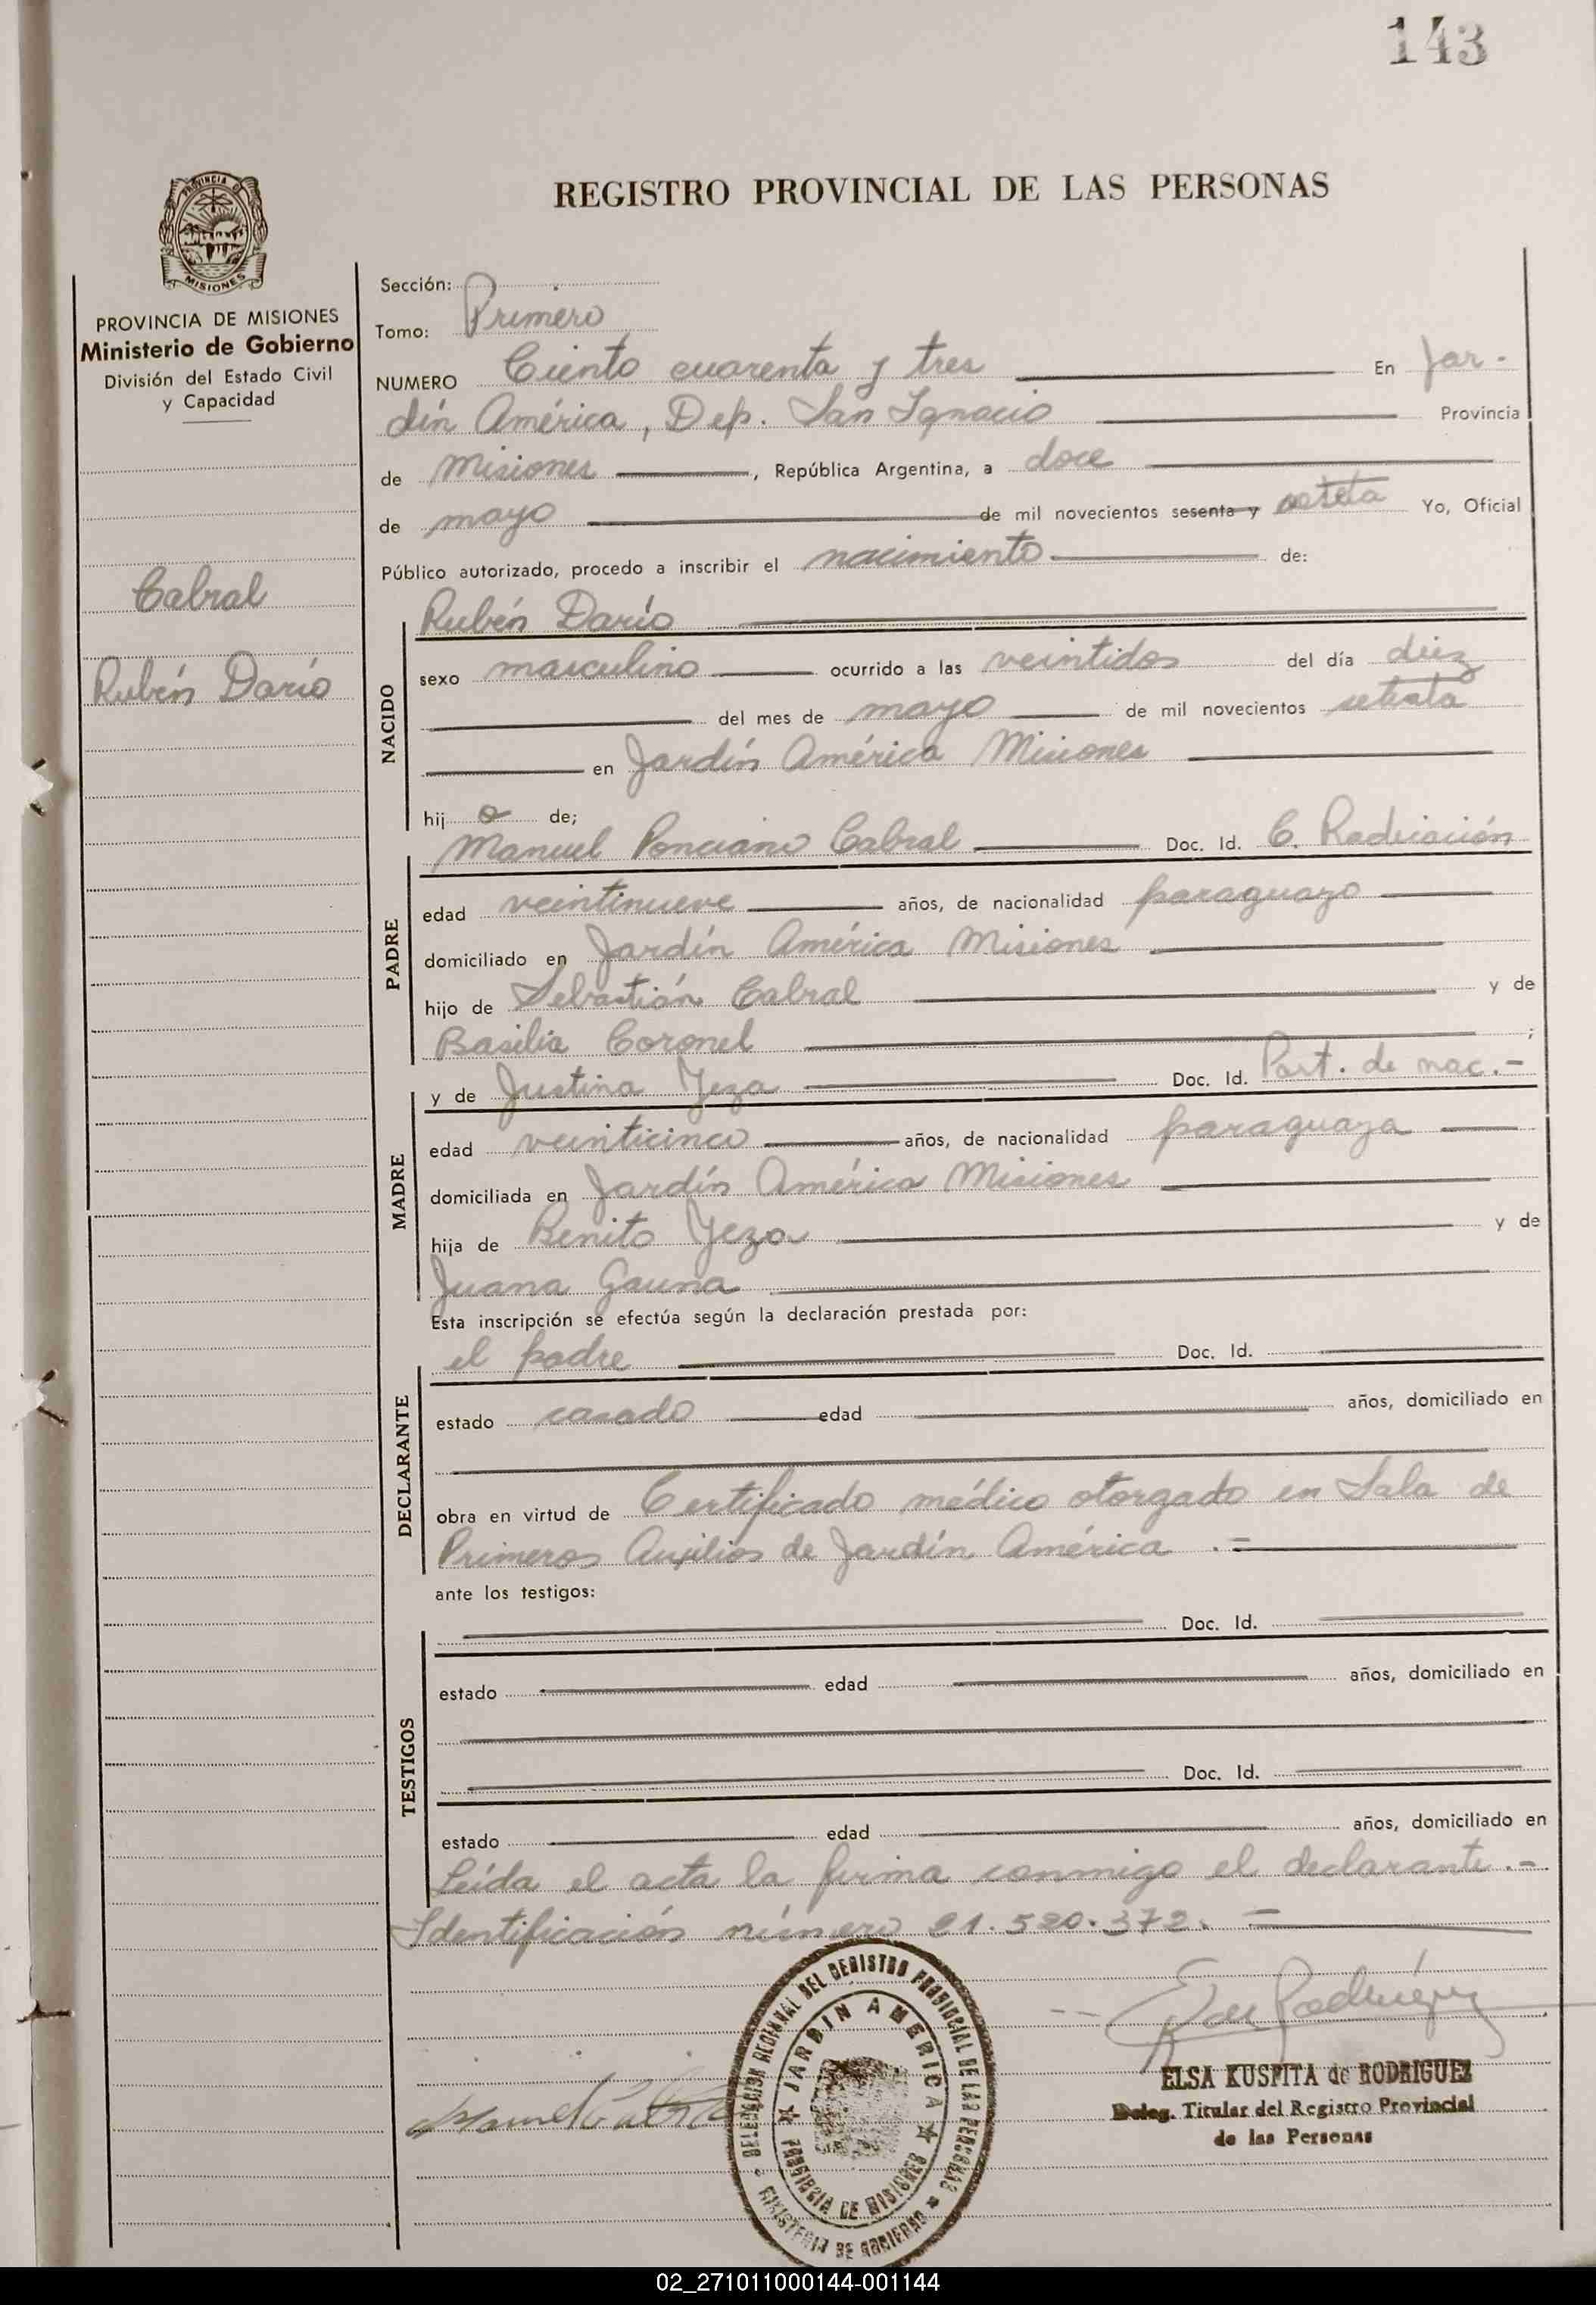 143
REGISTRO PROVINCIAL DE LAS PERSONAS
PROVINCIA DE
MISIONES
PROVINCIA DE MISIONES
Ministerio de Gobierno
División del Estado Civil
y Capacidad
Cabral
Rubén Darío
Sección:
Tomo: Primero
NUMERO Ciento cuarenta y tres En Jar-
dín América, Dep. San Ignacio Provincia
de Misiones, República Argentina, a doce
de mayo de mil novecientos sesenta y seteta Yo, Oficial
Público autorizado, procedo a inscribir el nacimiento de:
NACIDO
Rubén Darío
sexo masculino ocurrido a las veintidos del día diez
del mes de mayo de mil novecientos setenta
en Jardín América Misiones
hij o de;
PADRE
Manuel Ponciano Cabral Doc. Id. C. Radicación
edad veintinueve años, de nacionalidad paraguayo
domiciliado en Jardín América Misiones
hijo de Sebastián Cabral y de
Basilia Coronel ;
MADRE
y de Justina Yeza Doc. Id. Part. de nac.-
edad veinticinco años, de nacionalidad paraguaya
domiciliada en Jardín América Misiones
hija de Benito Yeza y de
Juana Gauna
Esta inscripción se efectúa según la declaración prestada por:
DECLARANTE
el padre Doc. Id.
estado casado edad años, domiciliado en
obra en virtud de Certificado médico otorgado en Sala de
Primeros Auxilios de Jardín América .=
ante los testigos:
TESTIGOS
Doc. Id.
estado edad años, domiciliado en
Doc. Id.
estado edad años, domiciliado en
Leída el acta la firma conmigo el declarante.-
Identificación número 21.520.372. =
DELEGACION REGIONAL DEL REGISTRO PROVINCIAL DE LAS PERSONAS
MINISTERIO DE GOBIERNO
JARDIN AMERICA
PROVINCIA DE MISIONES
ELSA KUSPITA de RODRIGUEZ
Deleg. Titular del Registro Provincial
de las Personas
02_271011000144-001144